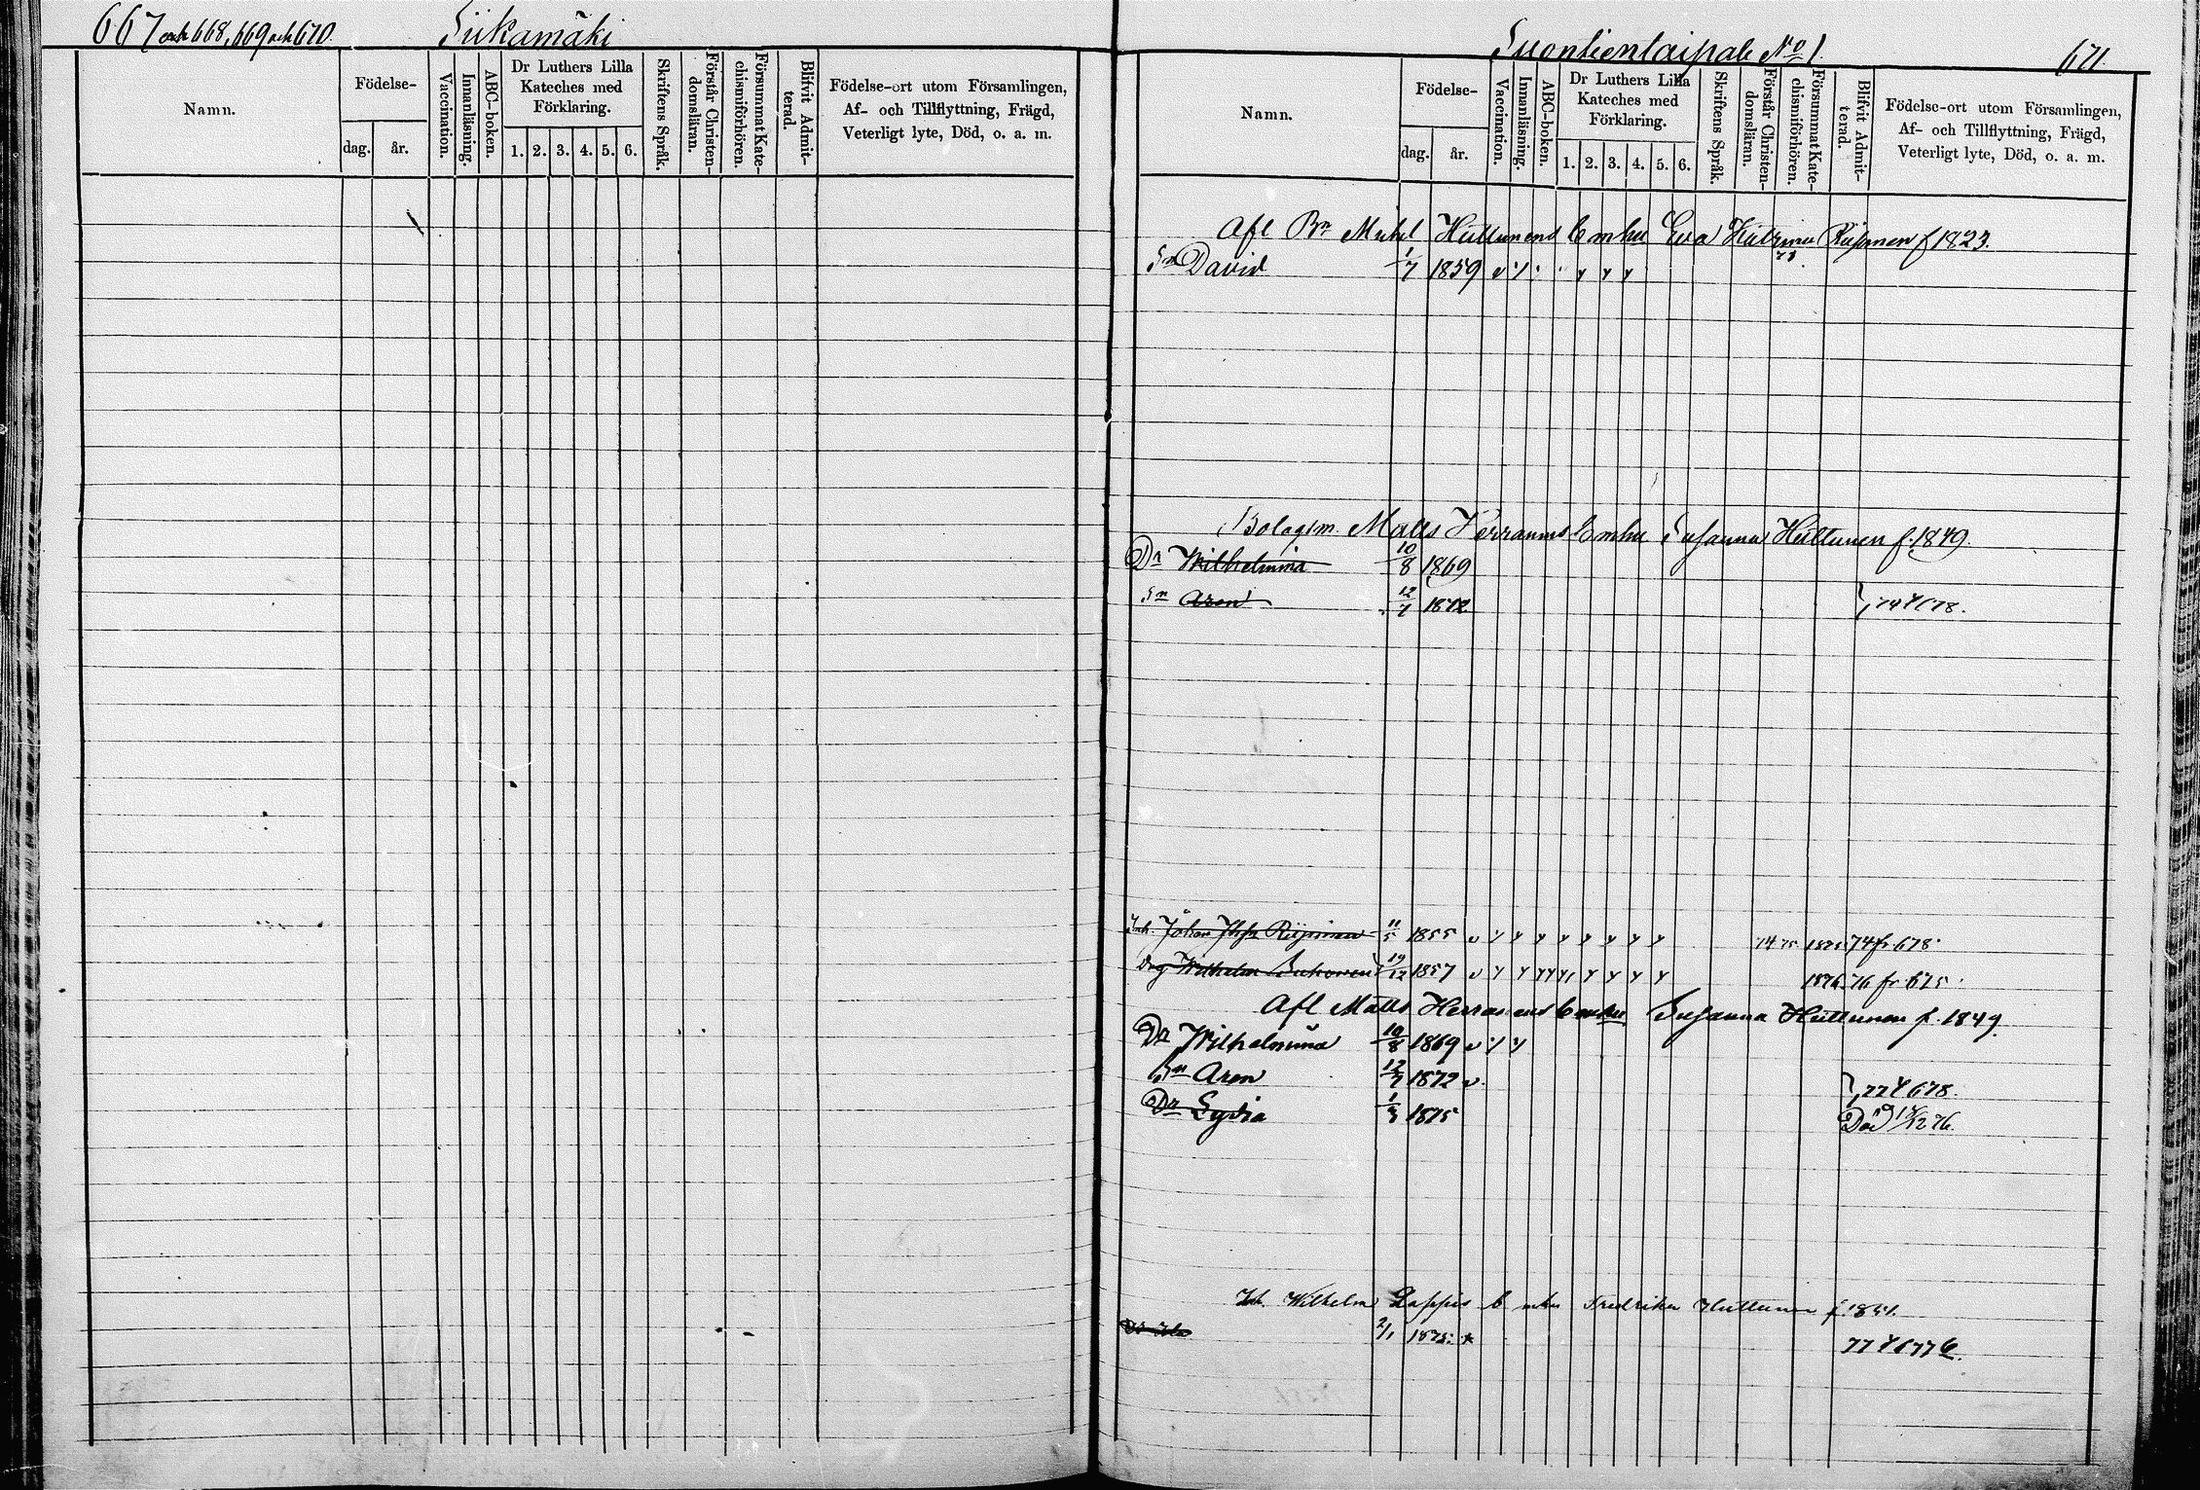 667 och 668, 669 och 670.
Siikamäki
Namn.
Födelse-
dag.
år.
Vaccination.
Innanläsning.
ABC-boken.
Dr Luthers Lilla
Kateches med
Förklaring.
1. 2. 3. 4. 5. 6.
Skriftens Språk.
Förstår Christen-
domsläran.
Försummat Kate-
chismiförhören.
Blifvit Admit-
terad.
Födelse-ort utom Församlingen,
Af- och Tillflyttning, Frägd,
Veterligt lyte, Död, o. a. m.
Suontientaipale No 1.
671.
Namn.
Födelse-
dag.
år.
Vaccination.
Innanläsning.
ABC-boken.
Dr Luthers Lilla
Kateches med
Förklaring.
1. 2. 3. 4. 5. 6.
Skriftens Språk.
Förstår Christen-
domsläran.
Försummat Kate-
chismiförhören.
Blifvit Admit-
terad.
Födelse-ort utom Församlingen,
Af- och Tillflyttning, Frägd,
Veterligt lyte, Död, o. a. m.
Afl Bn Mikel Huttunens Enka Eva f 1823.
Sn David 1/7 1859
Bolagsm. Matts Susanna Huttunen f. 1849.
Dr Wilhelmina 10/8 1869
Sn Aron 12/7 1872
Johan 11/5 1855 74 75 74 fr 678.
Drg Wilhelm 19/12 1857 1876 76 fr 675.
Afl Matts Susanna Huttunen f. 1849.
Dr Wilhelmina 10/8 1869
Sn Aron 12/7 1872
77 t 678.
Dr Lydia 1/3 1875
Död 76.
Wilhelm Lappis Fredrika Huttunen f. 1851.
2/1 1875.
77 t 677